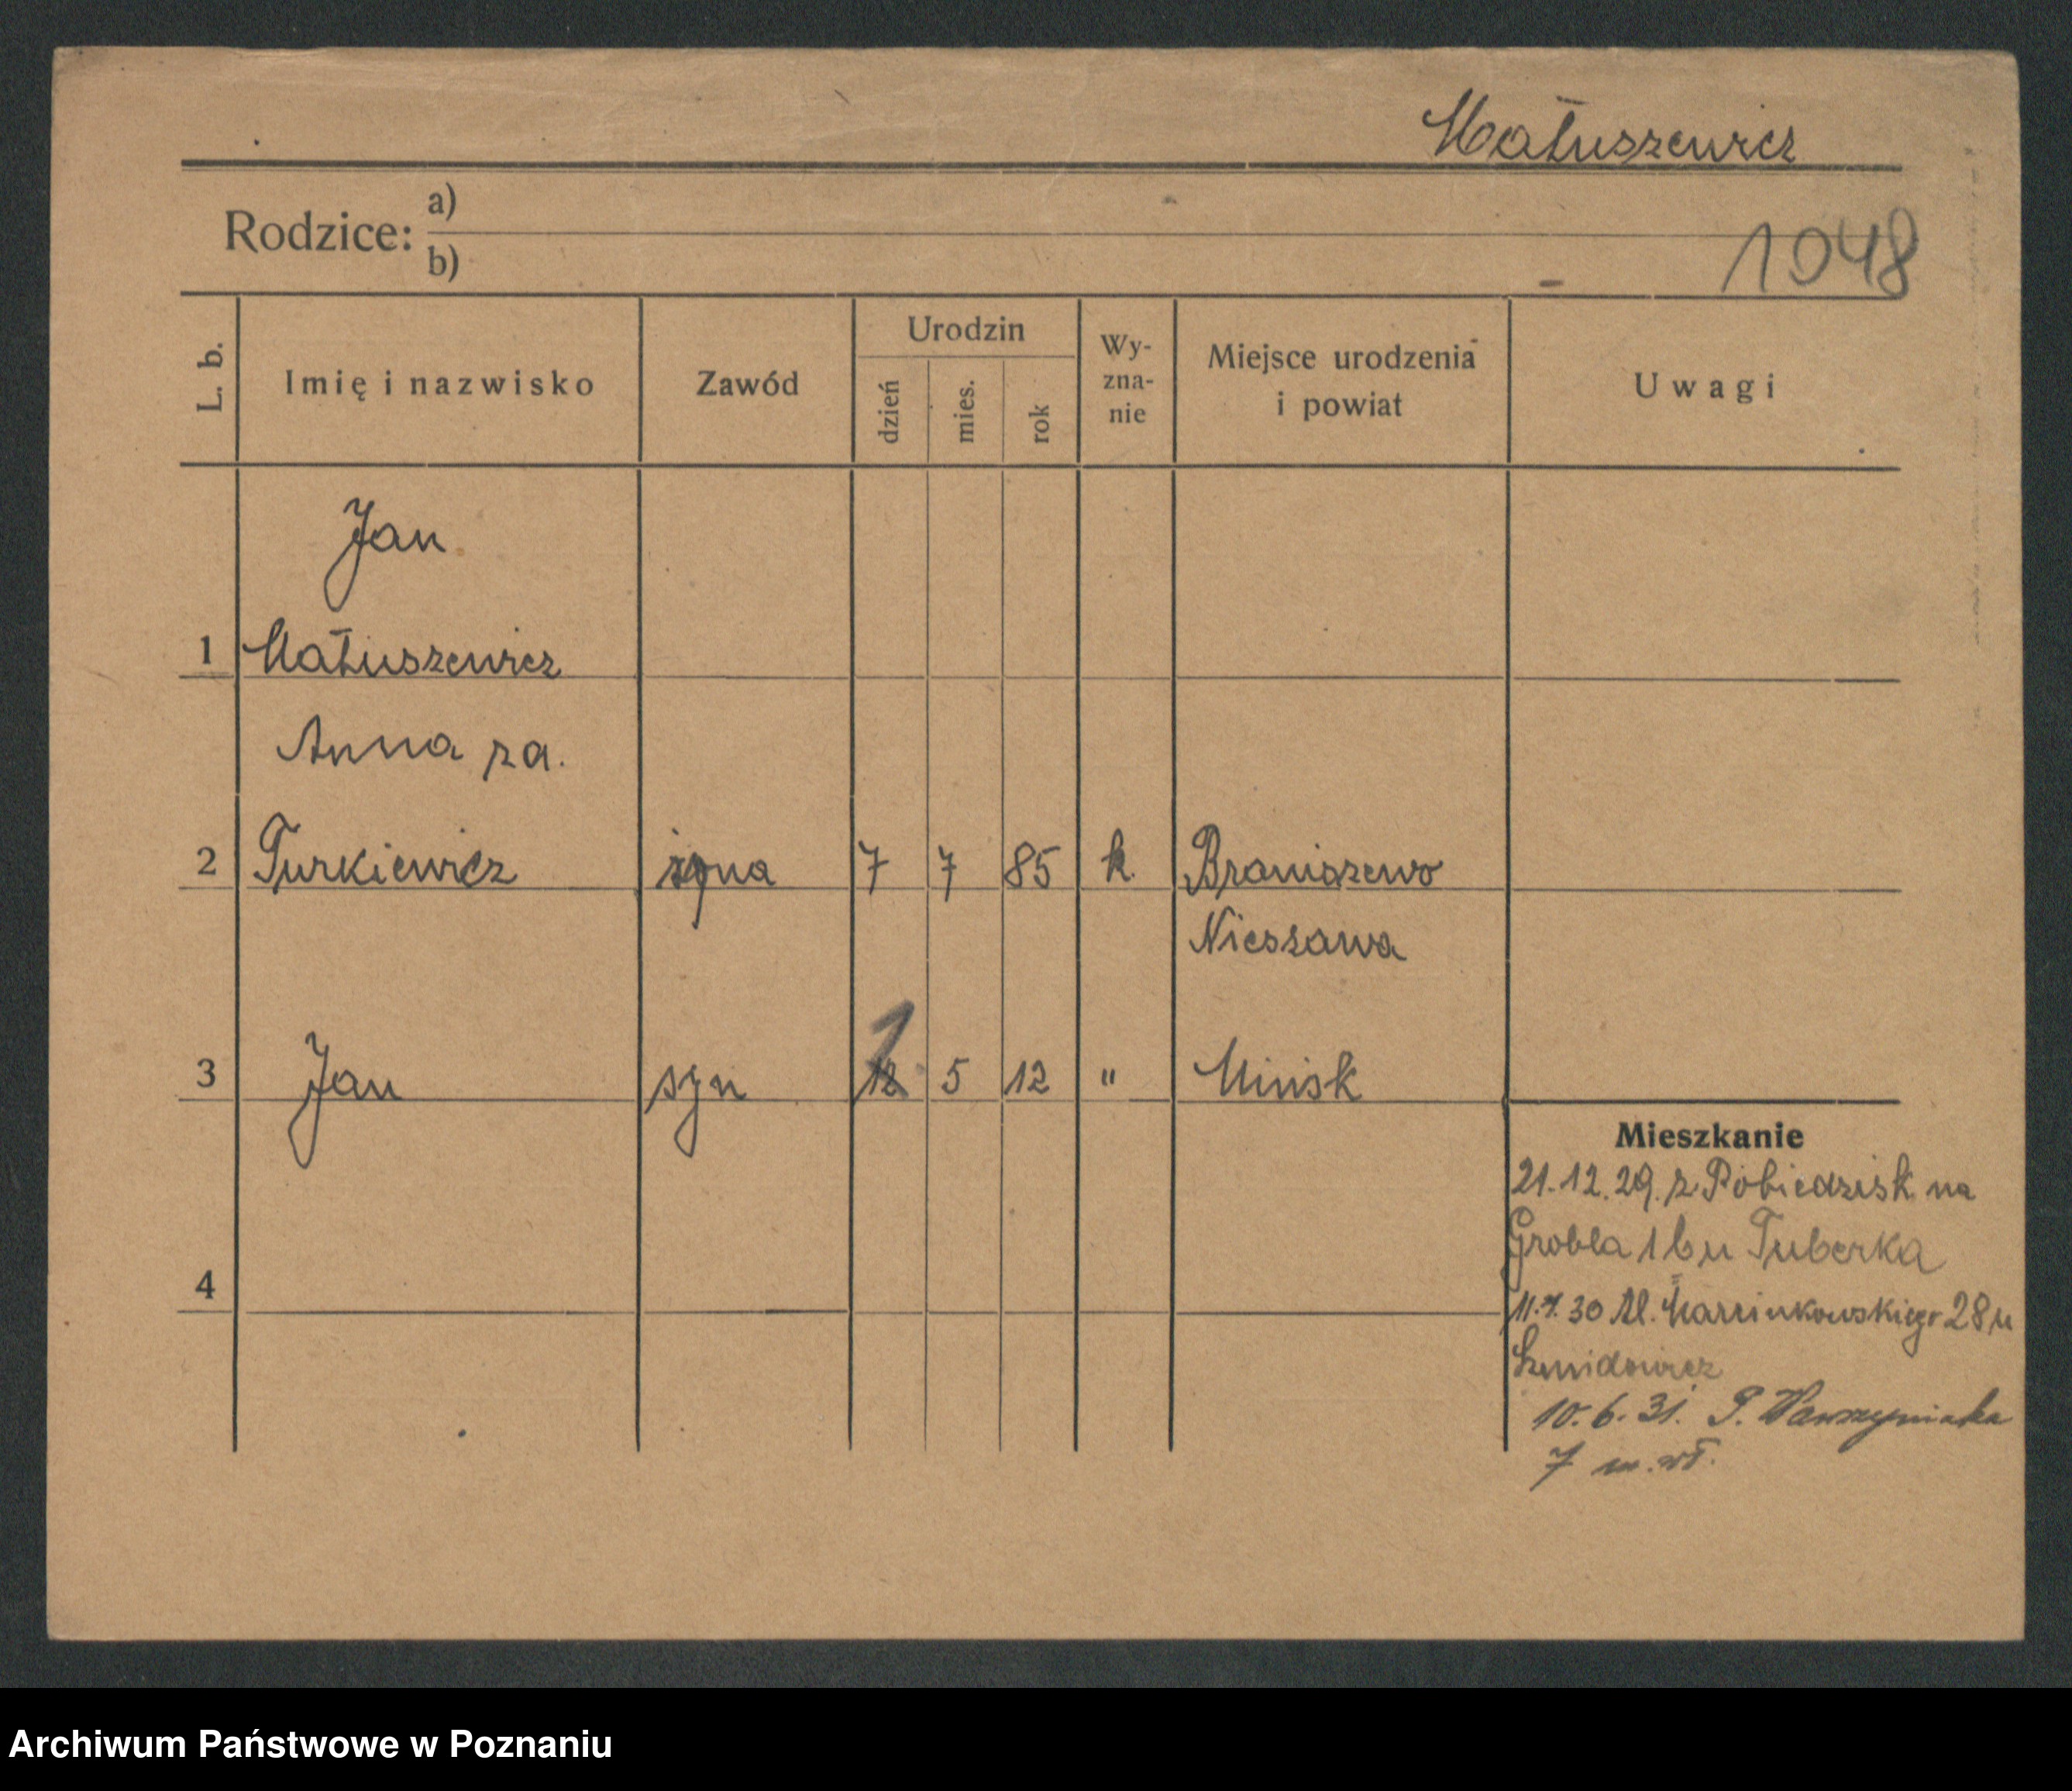 Matuszewicz
Rodzice: a)
b)
1048
L. b.
Imię i nazwisko
Zawód
Urodzin
dzień
mies.
rok
Wy-
zna-
nie
Miejsce urodzenia
i powiat
Uwagi
Jan
1 Matuszewicz
Anna za.
2 Turkiewicz żona 7 7 85 k. Braniszewo
Nieszawa
1
3 Jan syn 12 5 12 " Mińsk
4
Mieszkanie
21.12.29. z Pobiedzisk na
Grobla 1b u Tuberka
11.7.30 Al. Marcinkowskiego 28 u
Szmidowicz
10.6.31. P. Wawrzyniaka
7 m. wł.
Archiwum Państwowe w Poznaniu